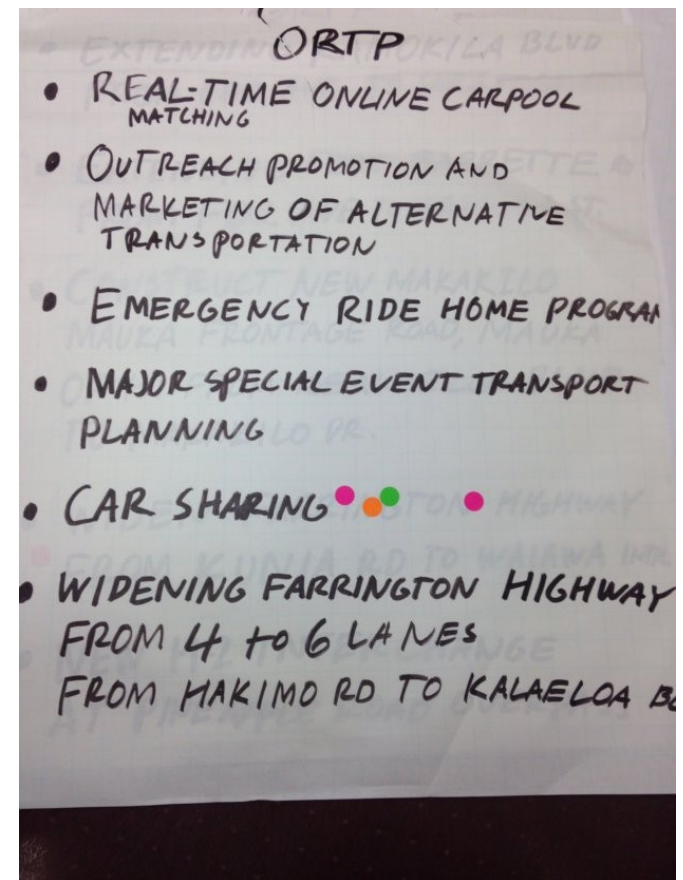 ORTP
• REAL-TIME ONLINE CARPOOL
MATCHING
• OUTREACH PROMOTION AND
MARKETING OF ALTERNATIVE
TRANSPORTATION
• EMERGENCY RIDE HOME PROGRAM
• MAJOR SPECIAL EVENT TRANSPORT
PLANNING
• CAR SHARING
• WIDENING FARRINGTON HIGHWAY
FROM 4 to 6 LANES
FROM HAKIMO RD TO KALAELOA